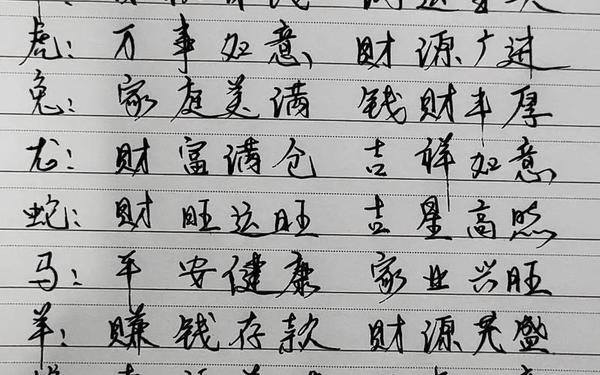 虎：万事如意 财源广进
兔：家庭美满 钱财丰厚
龙：财富满仓 吉祥如意
蛇：财旺运旺 吉星高照
马：平安健康 家业兴旺
羊：赚钱存款 财源茂盛